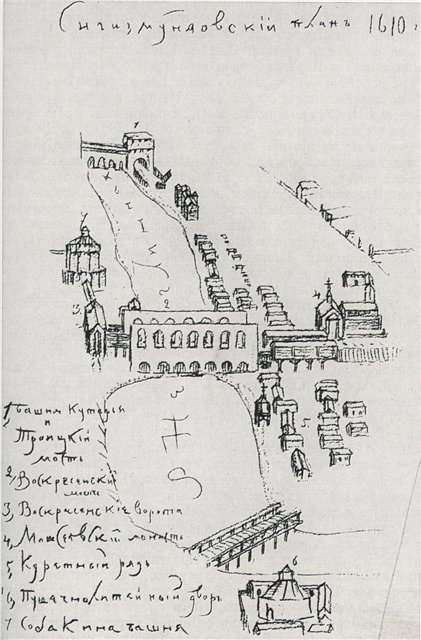 Сигизмундовскій планъ 1610 г
1
7
2
3
4
5
6
1, башня Кутафья
и
Троицкій
мостъ
2, Воскресенскій
мостъ
3, Воскресенскіе ворота
4, Моисеевскій монасть
5, Куретный рядъ
6, Пушечнолитейный дворъ
7 Собакина башня